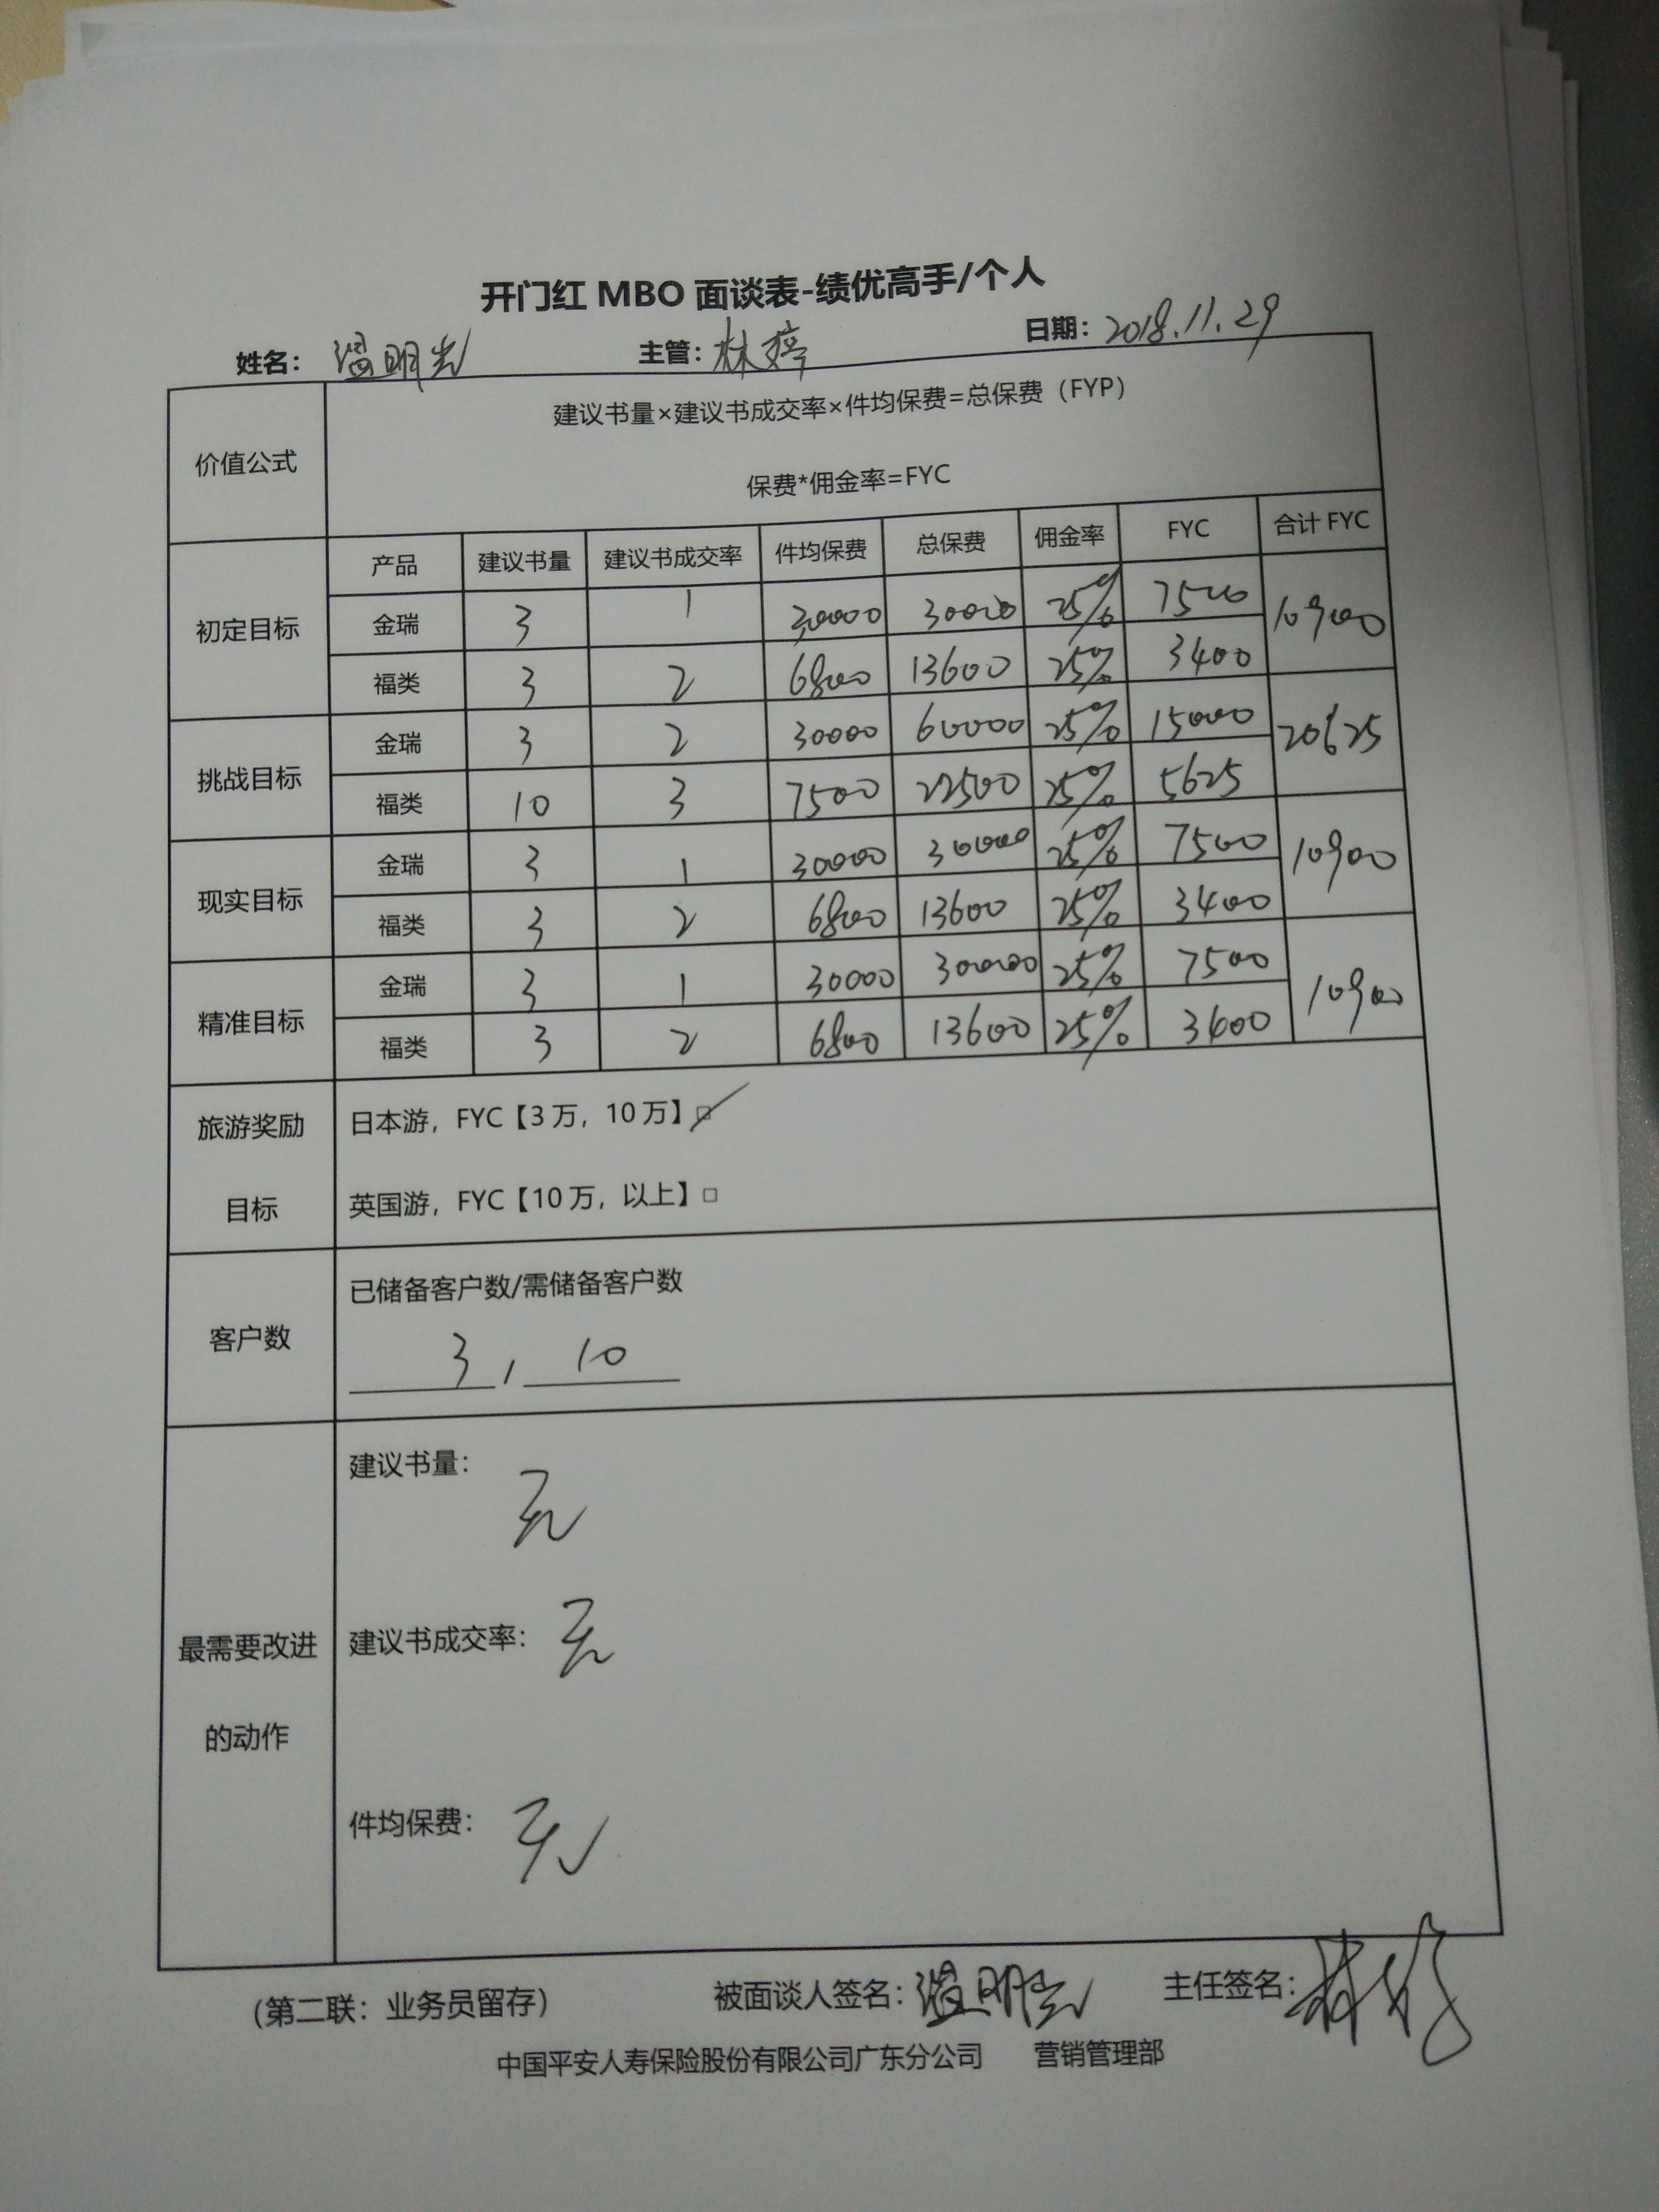 开门红 MBO 面谈表-绩优高手/个人
姓名：温明光 主管：林婷 日期：2018.11.29
价值公式 建议书量×建议书成交率×件均保费=总保费（FYP）
保费*佣金率=FYC
产品 建议书量 建议书成交率 件均保费 总保费 佣金率 FYC 合计 FYC
初定目标 金瑞 3 1 30000 30000 25% 7500 10900
福类 3 2 6800 13600 25% 3400
挑战目标 金瑞 3 2 30000 60000 25% 15000 20625
福类 10 3 7500 22500 25% 5625
现实目标 金瑞 3 1 30000 30000 25% 7500 10900
福类 3 2 6800 13600 25% 3400
精准目标 金瑞 3 1 30000 300000 25% 7500 10900
福类 3 2 6800 13600 25% 3400
旅游奖励目标 日本游，FYC【3 万，10 万】☑
英国游，FYC【10 万，以上】□
客户数 已储备客户数/需储备客户数
3 / 10
最需要改进的动作 建议书量： 无
建议书成交率： 无
件均保费： 无
（第二联：业务员留存） 被面谈人签名：温明光 主任签名：林婷
中国平安人寿保险股份有限公司广东分公司 营销管理部